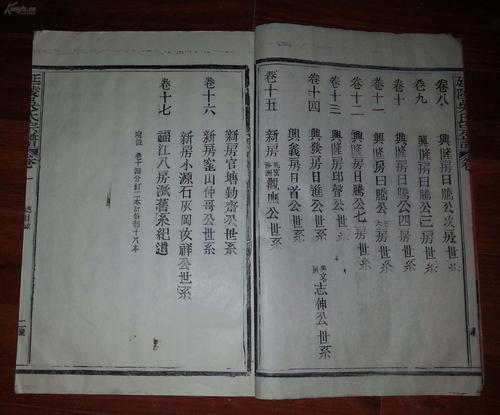 卷八　興隆房日騰公次房世系
卷九　興隆房日騰公三房世系
卷十　興隆房日騰公四房世系
卷十一　興隆房日騰公房世系
卷十二　興隆房日騰公七房世系
卷十三　興隆房邱聲公世系
卷十四　興發房日進公世系
興義房日首公世系
卷十五　新房觀應公世系
志伸公世系
新房官塘勤齋公世系
卷十六　新房窰山仲哥公世系
新房小源石灰岡友祥公世系
卷十七　諨江八房派舊系紀遺
附註　卷十四分訂二本計譜部十八本